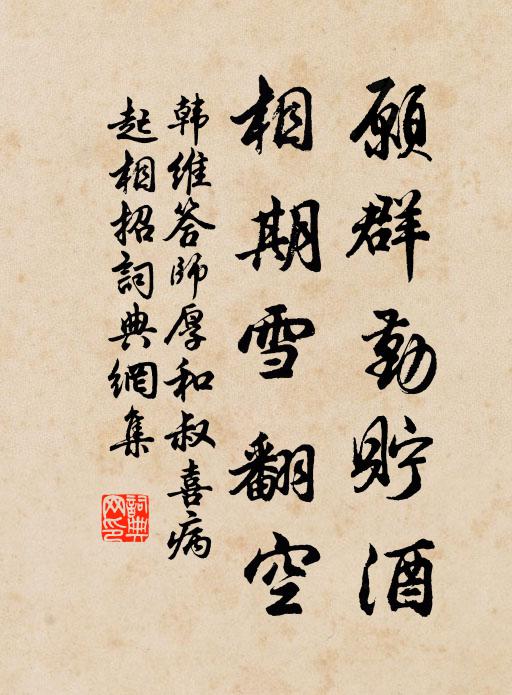 願群勤貯酒
相期雪翻空
韩維答師厚和叔喜病
起相招詞典網集
詞典
网印